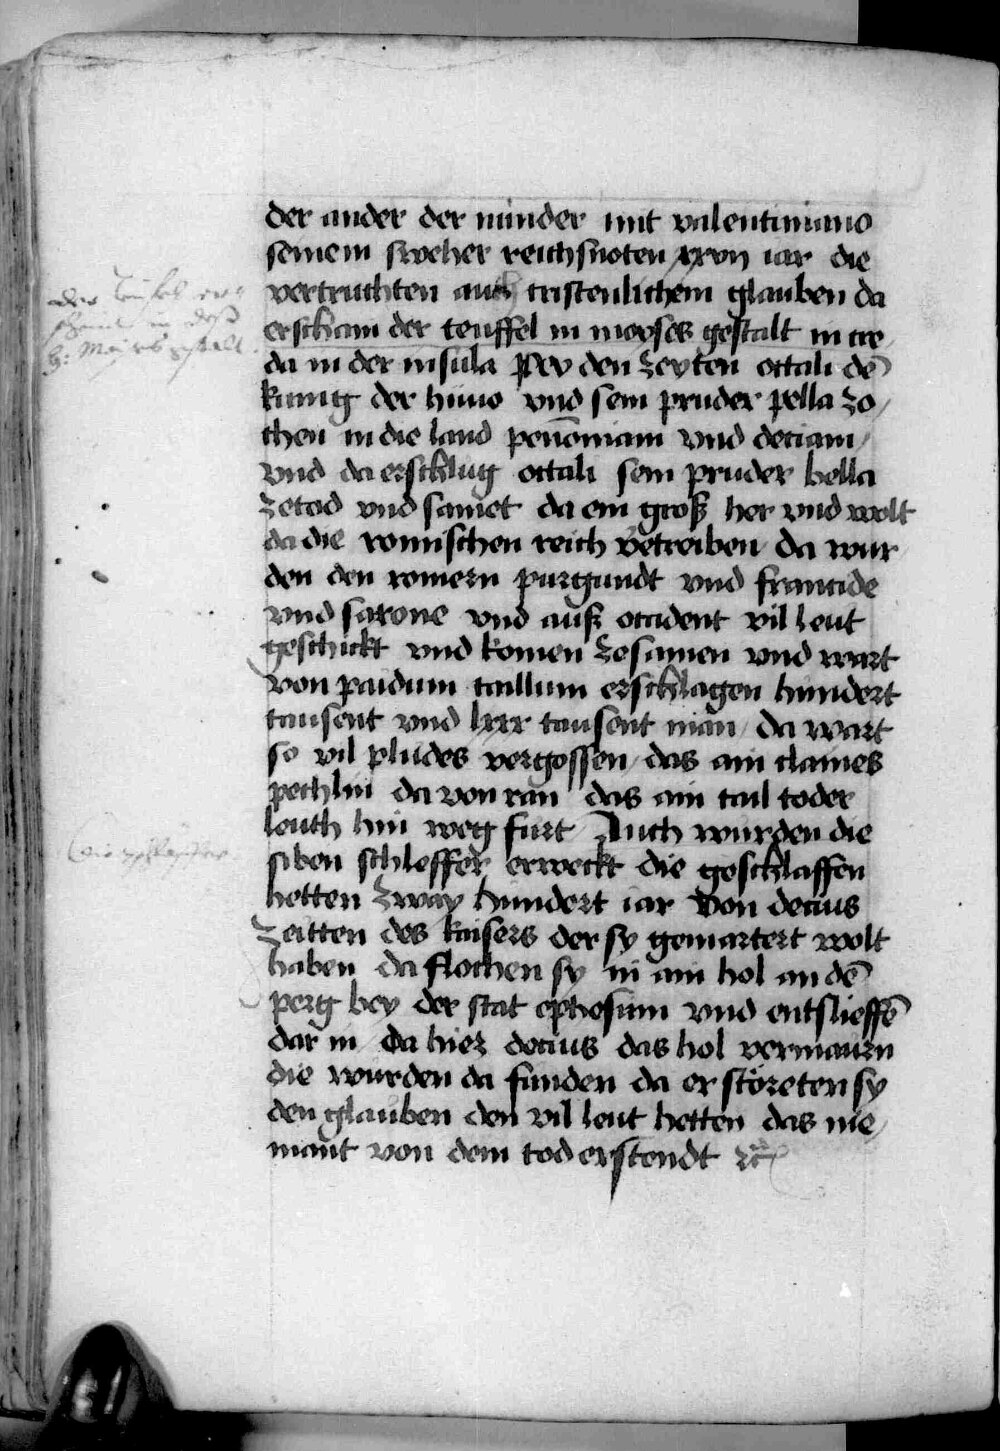 der ander der minder mit valentiniano
seinem sweher reichsnoten xxvij iar die
vertruchten auch cristenlichem glauben da
erscham der teuffel in moyses gestalt in cre
da in der insula Pey den zeyten ottali dē
kunig der hūno vnd sein pruder pella zo
chen in die land penōniam vnd deciam
vnd da erschlug ottali sein pruder bella
zetod vnd samet da ein groß her vnd wolt
da die romischen reich vetreiben da wur
den den romern purgundt vnd francide
vnd saxone vnd auß occident vil leut
geschickt vnd komen zesamen vnd wart
von paidum taillum erschlagen hundert
tausent vnd lxxx tausent man da wart
so vil pludes vergossen das ain claines
pechlin da von ran das ain tail toder
leuth hin weg furt Auch wurden die
siben schleffer erweckt die geschlaffen
hetten zway hundert iar von decius
zeitten des kaisers der sy gemartert wolt
haben da flochen sy in ain hol an dē
perg bey der stat ephesum vnd entslieffē
dar in da hiez decius das hol vermaurn
die wurden da funden da er störeten sy
den glauben den vil leut hetten das nie
mant von dem tod erstendt zc̄
der teufel er
scheint in
gestalt